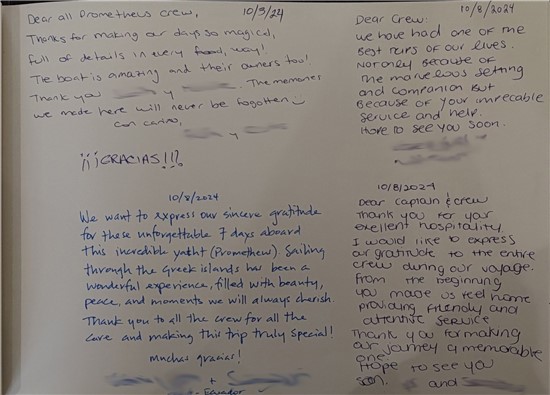 Dear all Prometheus crew, 10/3/24
Thanks for making our days so magical,
full of details in every way!
The boat is amazing and their owners too!
Thank you y . The memories
we made here will never be fogotten
con cariño,
y
¡¡¡GRACIAS!!!
10/8/2024
Dear Crew:
we have had one of the
Best tears of our lives.
Not only Because of
the marvelous setting
and companion But
Because of your impecable
service and help.
Hope to see you soon.
10/8/2024
We want to express our sincere gratitude
for these unforgettable 7 days aboard
this incredible yatht (Promethew) Sailing
through the Greek islands has been a
wonderful experience, filled with beauty,
peace, and moments we will always cherish.
Thank you to all the crew for all the
care and making this trip truly special!
Muchas gracias!
+
- Ecuador
10/8/2024
Dear captain & crew
Thank you for your
exellent hospitality
I would like to express
our gratitude to the entire
crew during our voyage.
From the beginning
you made us feel home
providing friendly and
attentive service
Thank you for making
our journey a memorable
one.
Hope to see you
soon. and